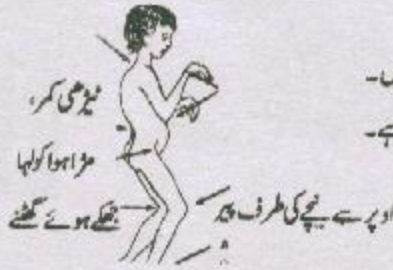 ں۔
ٹیڑھی کمر،
ہے۔
مڑا ہوا کولہا
جھکے ہوئے گھٹنے
اوپر سے نیچے کی طرف پیر